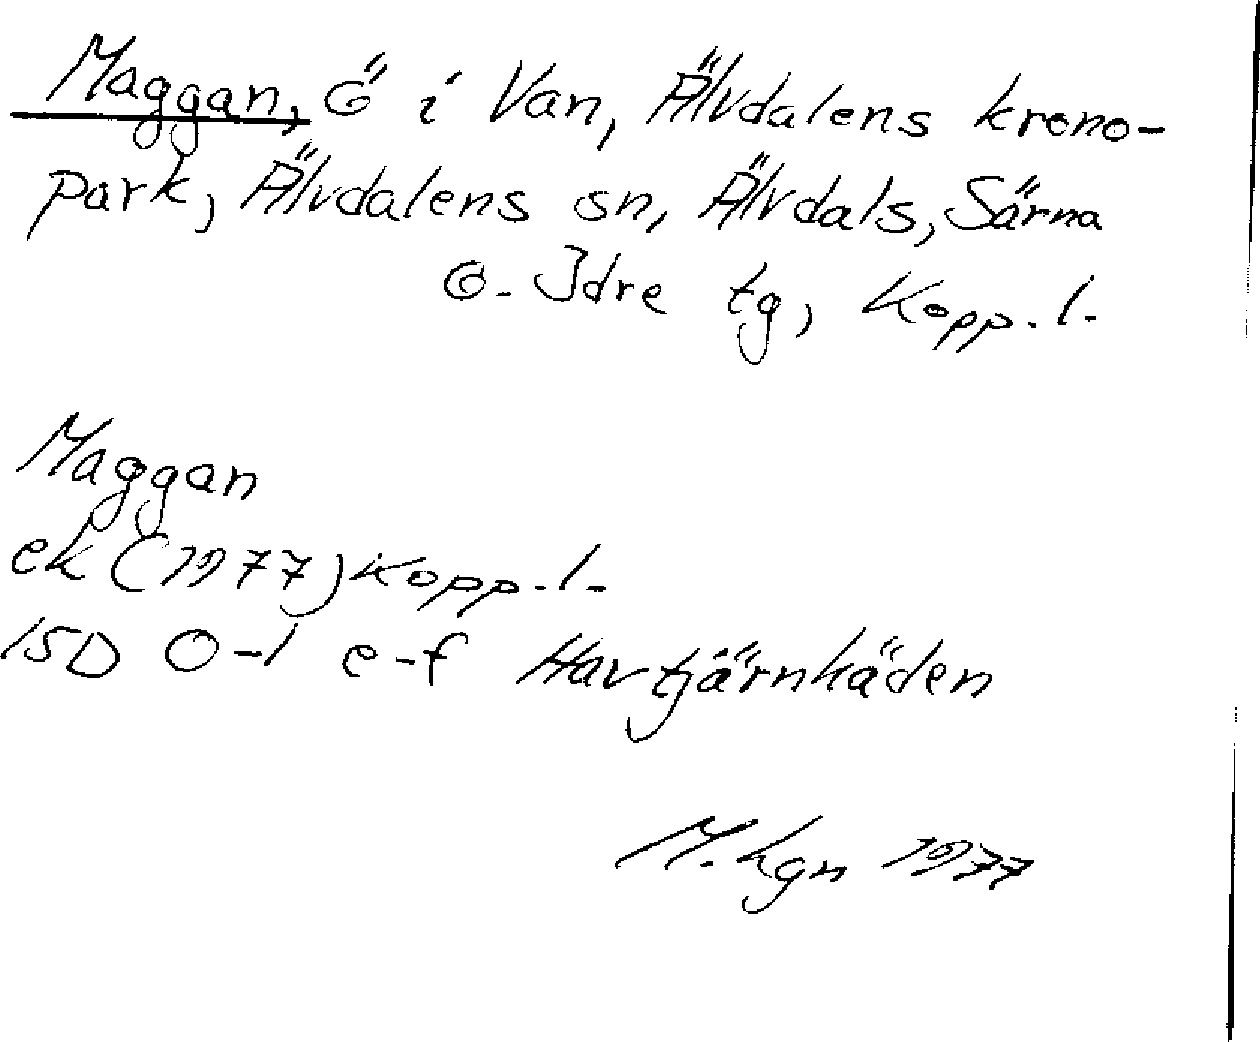 Maggan, Ö i Van, Älvdalens krono-
park, Älvdalens sn, Älvdals, Särna
o. Idre tg, Kopp. l.
Maggan
ek (1977) Kopp. l.
15D 0-1 e-f Havtjärnhäden
M. Lgn 1977